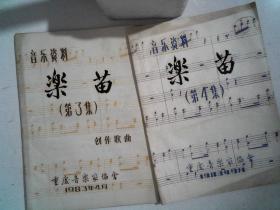 音乐资料
楽苗
(第3集)
创作歌曲
重庆音乐家协会
1983年4月
音乐资料
楽苗
(第4集)
重庆音乐家协会